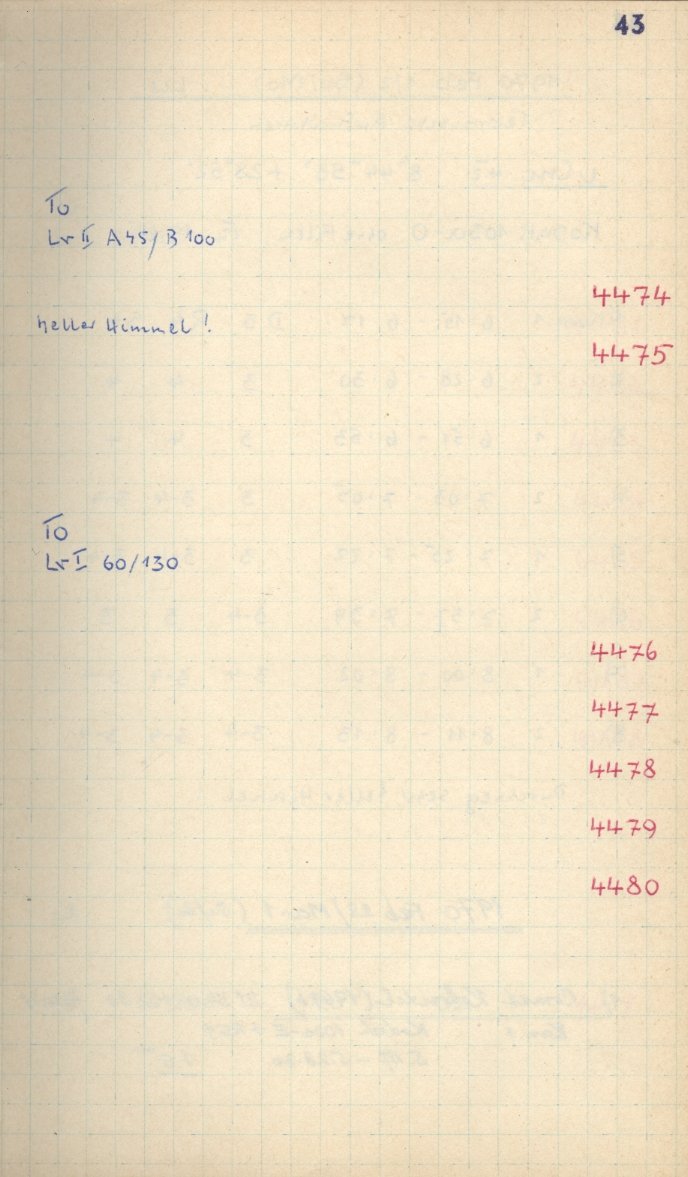 43
To
Lr II A45/B100
4474
heller Himmel!
4475
To
Lr I 60/130
4476
4477
4478
4479
4480